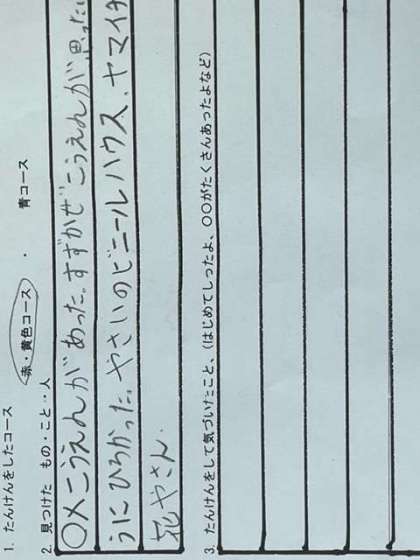 1. たんけんをしたコース
赤・黄色コース ・ 青コース
2. 見つけた もの・こと・人
〇メこうえんがあった。すずかぜこうえんが思った
うにひろかった。やさいのビニールハウス、ヤマイチ
花やさん.
3. たんけんをして気づいたこと、(はじめてしったよ、〇〇がたくさんあったよなど)